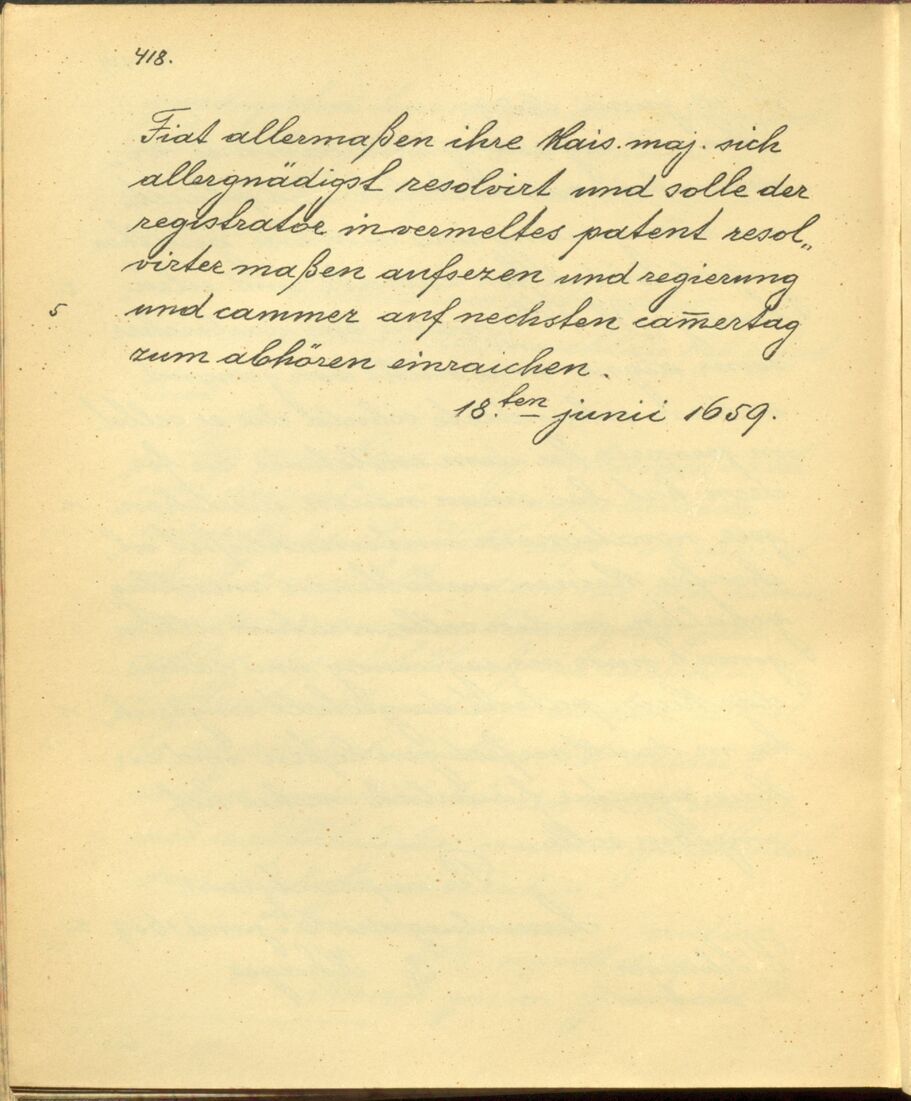 418.
Fiat allermaßen ihre Kais. maj. sich
allergnädigst resolvirt und solle der
registrator invermeltes patent resol„
virter maßen aufsezen und regierung
5 und cammer auf nechsten cam̄ertag
zum abhören einraichen.
18.ten junii 1659.